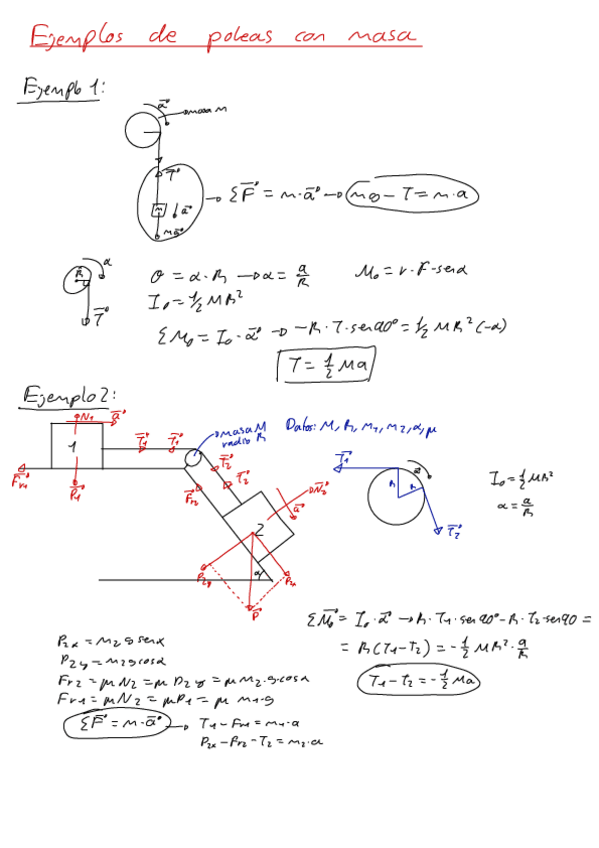 Ejemplos de poleas con masa
Ejemplo 1:
a⃗
masa M
T⃗
ΣF⃗ = m·a⃗ → mg - T = m·a
m
a⃗
α
R
T⃗
a = α·R → α = a/R
M₀ = r·F·senα
I₀ = 1/2 MR²
ΣM₀ = I₀·α⃗ → -R·T·sen90° = 1/2 MR² (-α)
T = 1/2 Ma
Ejemplo 2:
N⃗₁
a⃗
1
T⃗₁
T⃗₁
masa M
radio R
Datos: M, R, m₁, m₂, α, μ
F⃗r₁
P⃗₁
T⃗₂
T⃗₂
F⃗r₂
N⃗₂
a⃗
2
P₂y
P₂x
P⃗
α
T⃗₁
R
R
T⃗₂
I₀ = 1/2 MR²
α = a/R
ΣM⃗₀ = I₀·α⃗ → R·T₁·sen90° - R·T₂·sen90 =
= R(T₁-T₂) = -1/2 MR²·a/R
T₁-T₂ = -1/2 Ma
P₂x = m₂ g senα
P₂y = m₂ g cosα
Fr₂ = μN₂ = μ P₂y = μ m₂·g·cosα
Fr₁ = μN₁ = μP₁ = μ m₁·g
ΣF⃗ = m·a⃗ → T₁ - Fr₁ = m₁·a
P₂x - Fr₂ - T₂ = m₂·a